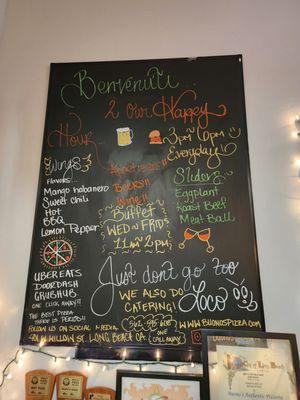 Benvenuti...
2 Our Happy
Hour...
3pm-6pm
Everyday!
Wings
Flavors...
Mango habanero
Sweet Chili
Hot
BBQ
Lemon Pepper
Appetizers!!
Beers!!
Wine!!
Sliders
Eggplant
Roast Beef
Meat Ball
Buffet
WED n FRIDS
11am-2pm
UBER EATS
DOORDASH
GRUBHUB
ONE CLICK AWAY!!
Just don't go too
Loco
WE ALSO DO
CATERING!
THE BEST PIZZA
THERE IS PERIOD!!
ONE
CALL AWAY
FOLLOW US ON SOCIAL MEDIA
WWW.BUONOSPIZZA.COM
401 W. WILLOW ST. LONG BEACH CA.